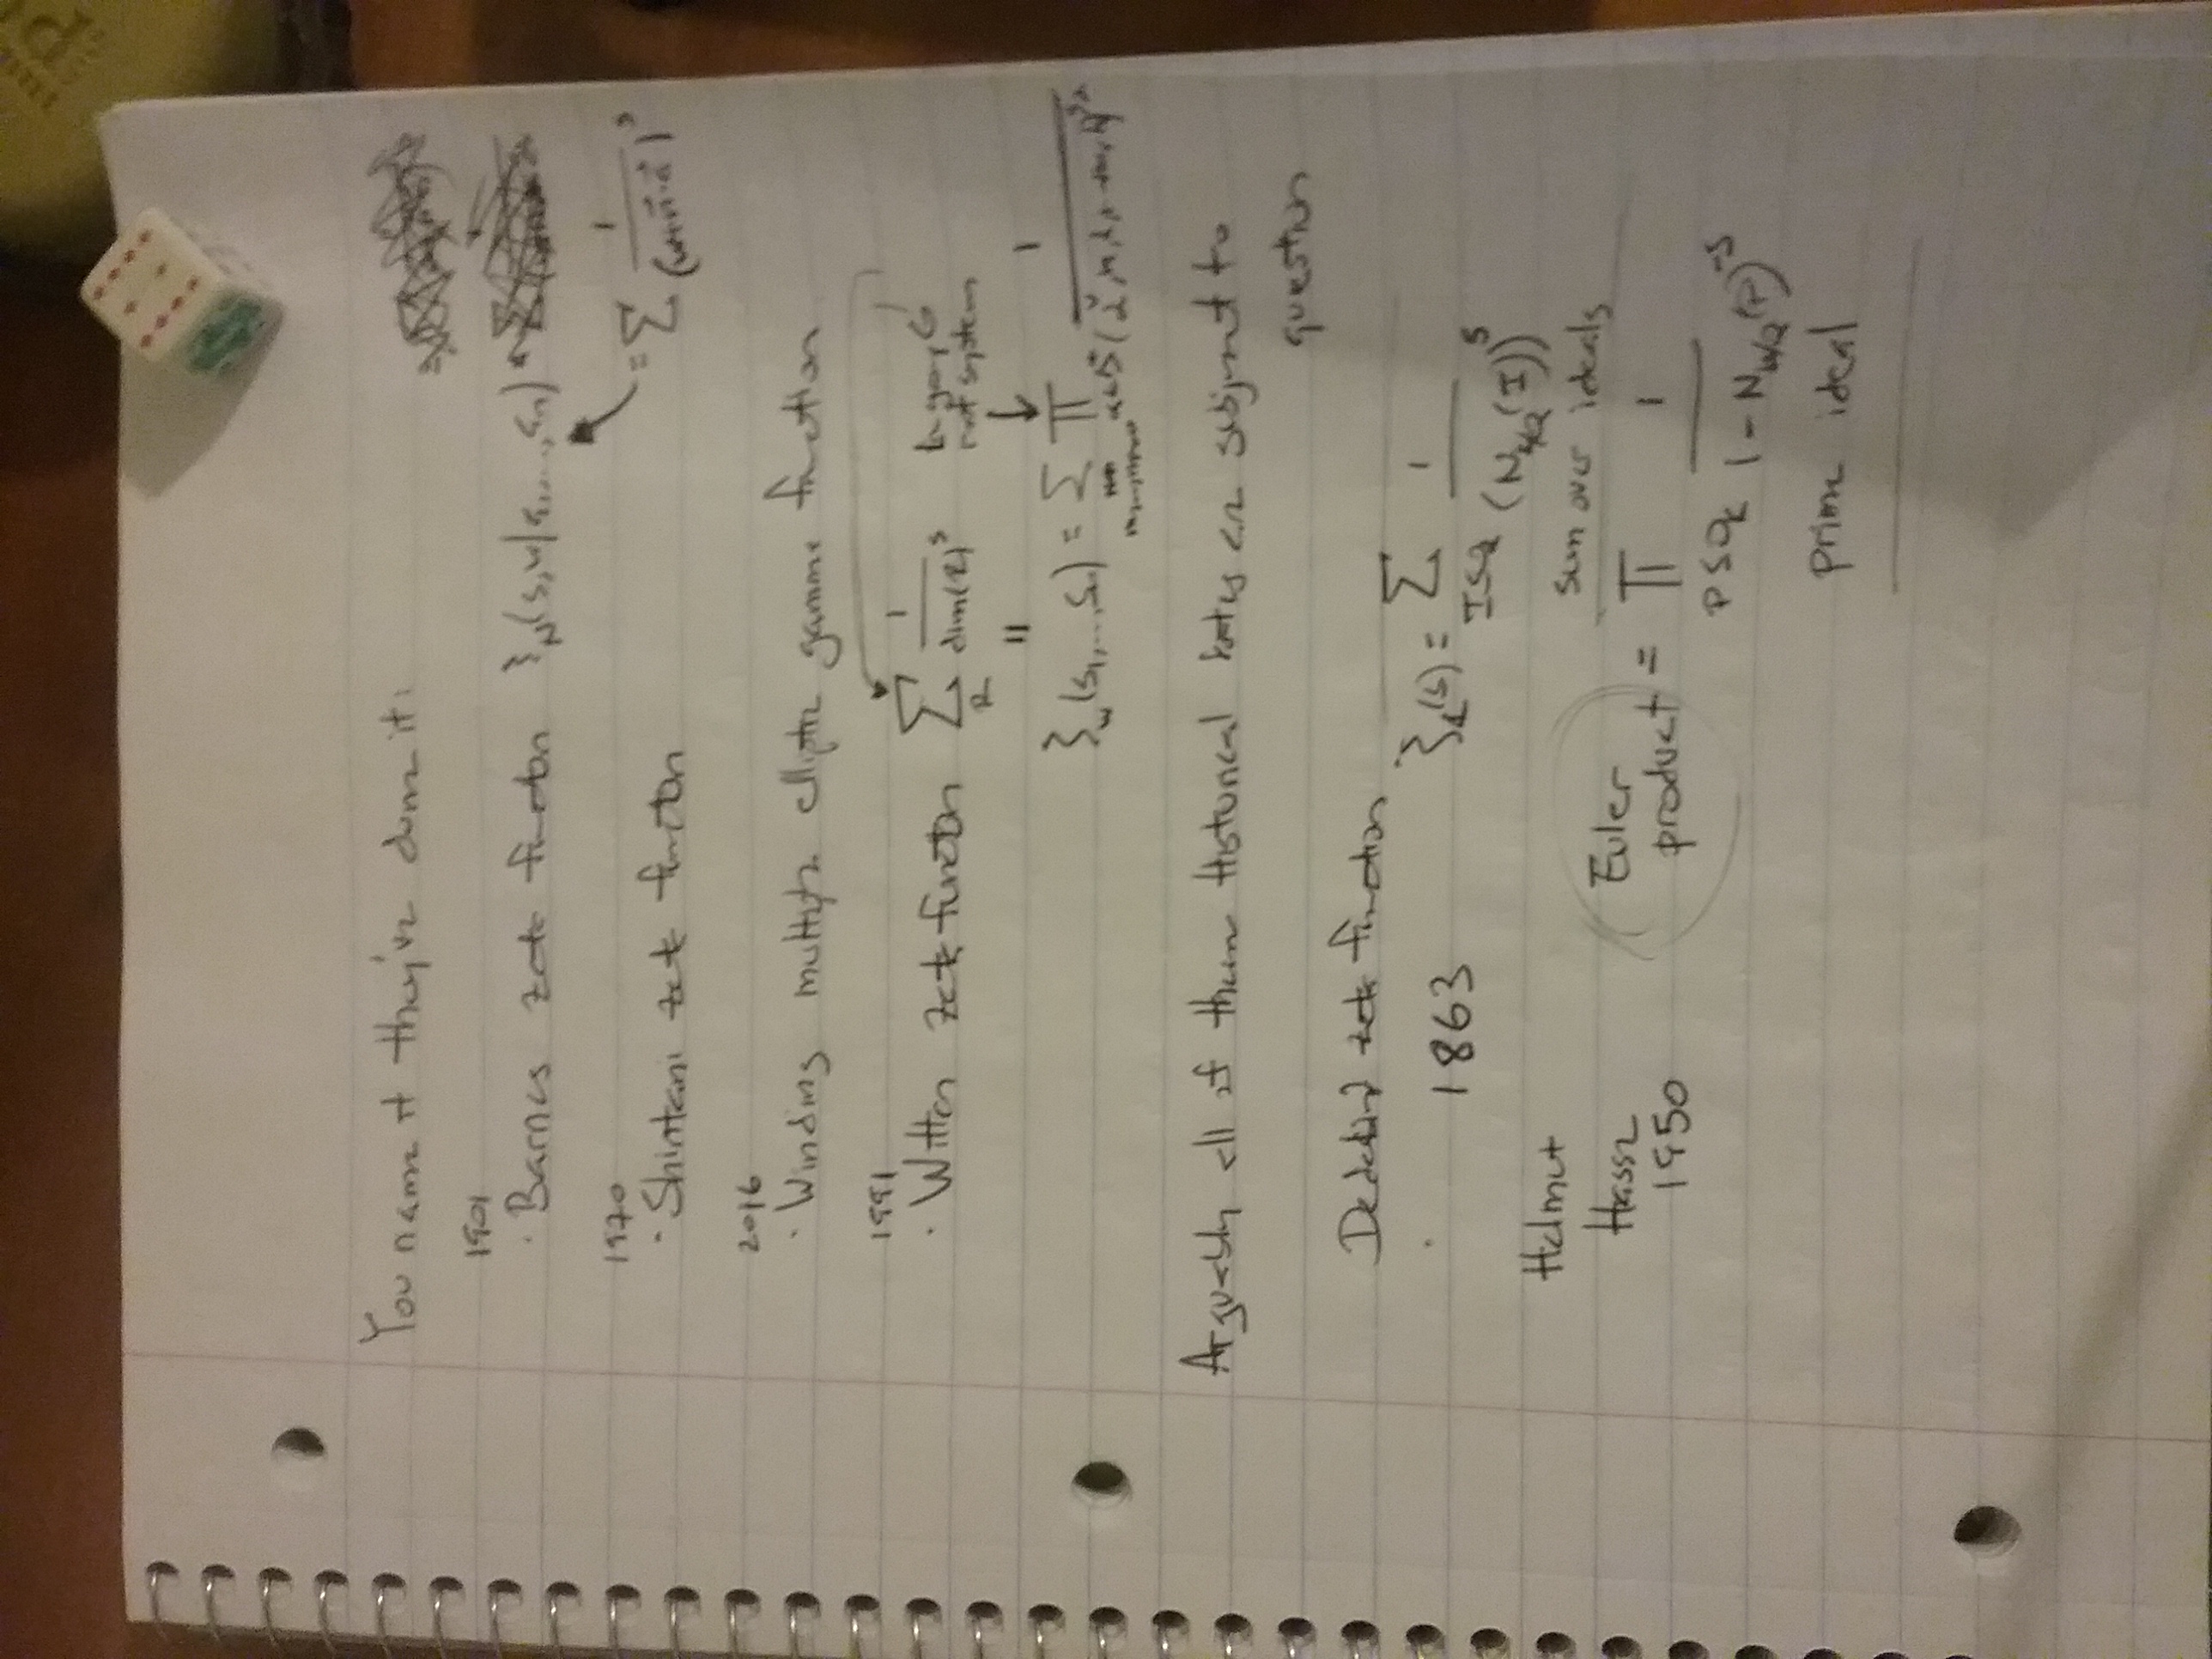 You name it they've done it.
1901
· Barnes zeta function ζ_N(s,w|a_1,...,a_n)
= Σ 1/(w+n·a)^s
1970
· Shintani zeta function
2016
· Windings multiple elliptic gamma function
1991
· Witten zeta function Σ_R 1/dim(R)^s
root system
"
ζ_w(s_1,...,s_n) = Σ Π 1
Arguably all of them Historical notes are subject to
question
Dedekind zeta function
· 1863 ζ_K(s) = Σ 1/(N_K/Q(I))^s
sum over ideals
Helmut
Hasse
1950
Euler
product = Π 1/1-N_K/Q(P)^-s
prime ideal